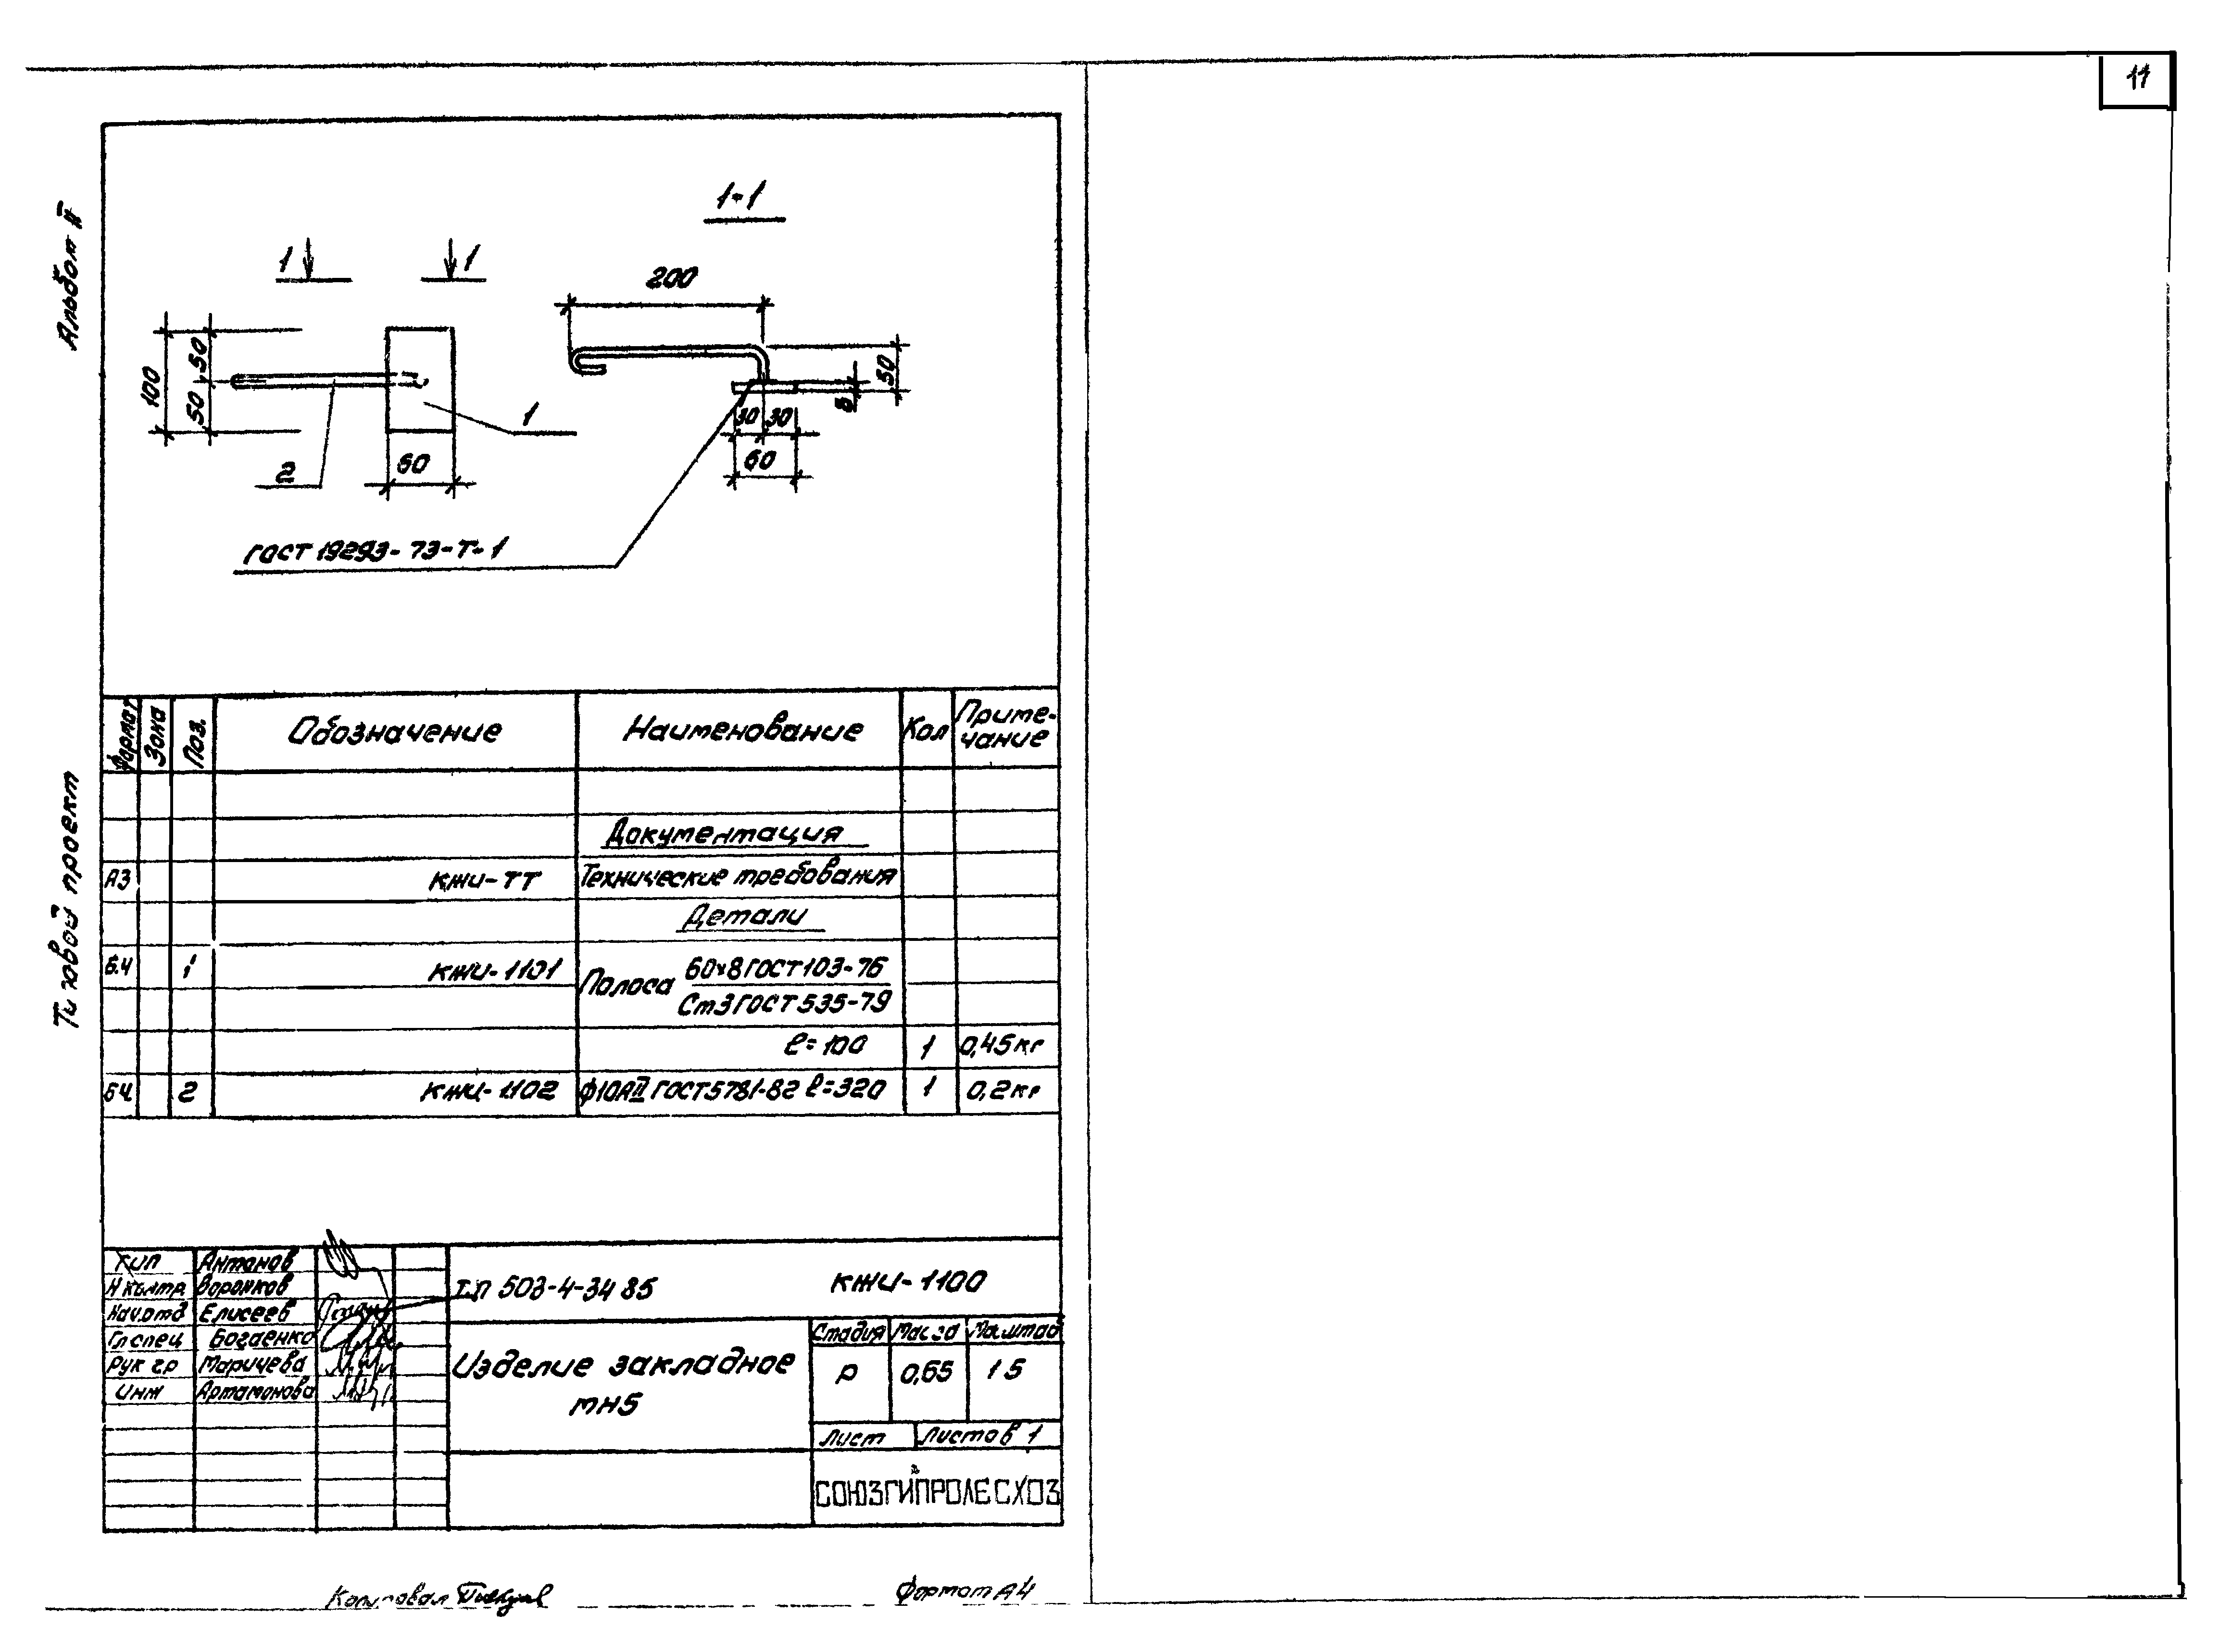 11
Альбом II
Типовой проект
1-1
1 1
200
50
50
100
60
1
2
50
8
30 30
60
ГОСТ 19293-73-Т-1
Формат Зона Поз. Обозначение Наименование Кол Приме-
чание
Документация
А3 КЖИ-ТТ Технические требования
Детали
Б.Ч 1 КЖИ-1101 Полоса 60х8 ГОСТ 103-76
Ст3 ГОСТ 535-79
ℓ=100 1 0,45кг
БЧ 2 КЖИ-1102 ф10АII ГОСТ 5781-82 ℓ=320 1 0,2кг
ГИП Антонов
Н контр Воронков
Нач.отд Елисеев
Гл спец Богаенко
Рук гр Маричева
Инж Артамонова
т.п 503-4-34 85 КЖИ-1100
Изделие закладное
МН5
Стадия Масса Масштаб
Р 0,65 1 5
Лист Листов 1
СОЮЗГИПРОЛЕСХОЗ
Копировал
Формат А4